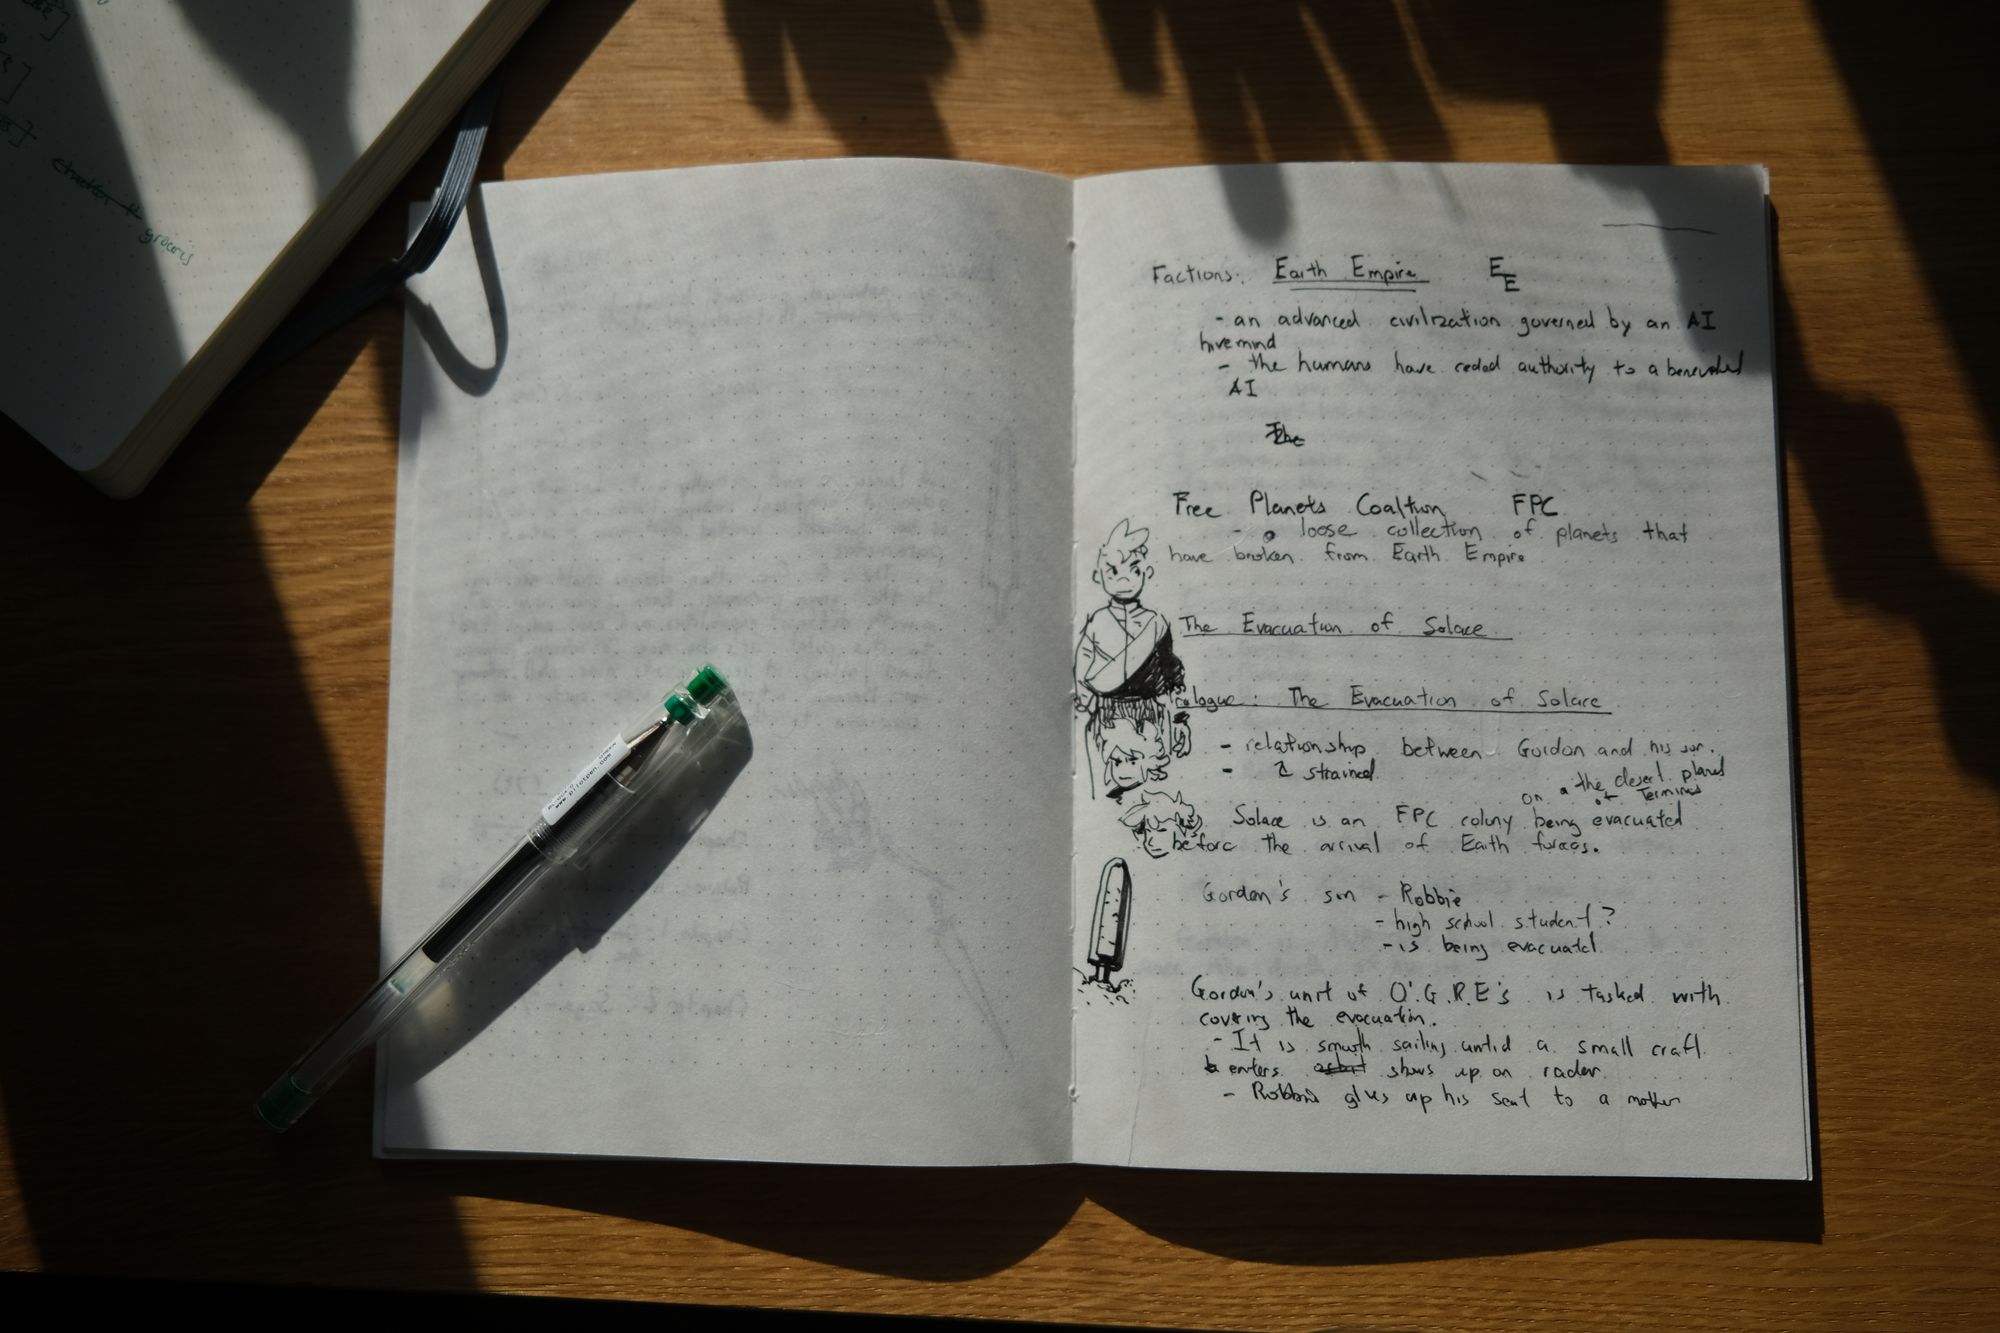 groceris
Factions: Earth Empire EE
- an advanced civilization governed by an AI
hivemind
- the humans have ceded authority to a benevolent
AI
The
Free Planets Coaltion FPC
- a loose collection of planets that
have broken from Earth Empire
The Evacuation of Solace
Prologue: The Evacuation of Solace
- relationship between Gordon and his son.
- is strained
on a the desert planet
of Terminus
Solace is an FPC colony being evacuated
before the arrival of Earth forces.
Gordon's son - Robbie
- high school student?
- is being evacuated
Gordon's unit of O.G.R.E's is tasked with
covering the evacuation.
- It is smooth sailing until a small craft
enters orbit shows up on radar
- Robbie gives up his seat to a mother
www.pilotpen.com